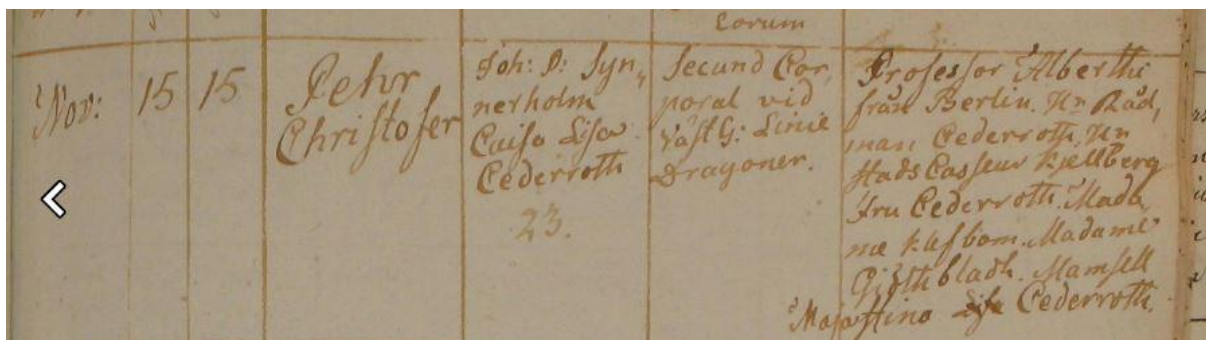 Lorum
Nov: 15 15
Pehr
Christofer
Joh: P: Syn,,
nerholm
Caisa Lisa
Cederroth
23.
Secund Cor,
poral vid
Väst G: Linie
Dragoner.
Professor Alberthi
från Berlin. Hr Råd,
man Cederroth. Hr
Stads Casseur Kjellberg
Fru Cederroth. Mada,
me Klefbom. Madame
Giöthbladh. Mamsell
Maja Stina Cederroth.